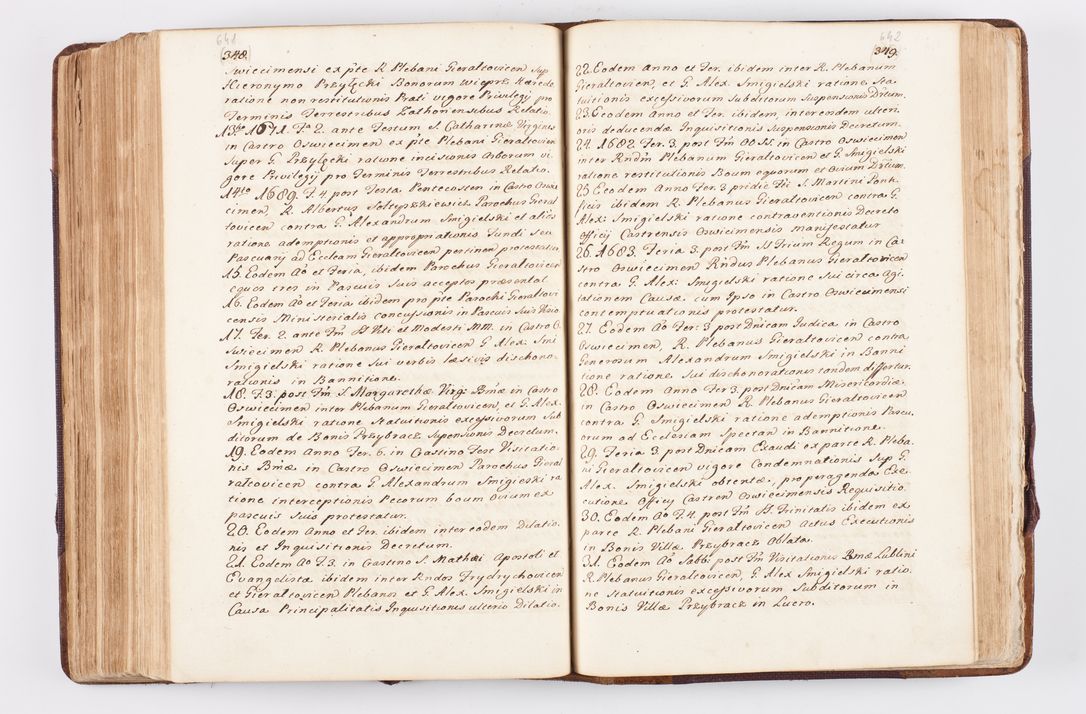 641
348.
Swiecimensi ex pte R Plebani Gieraltovicen sup
Hieronymo Przyłęcki Bonorum wieprz Hærede
ratione non restitutionis Prati vigore Privilegij pro
Terminis Terrestribus Zathoniensibus Relatio.
13. 1671. Fa 2. ante Festum S. Catharinæ Virginis
in Castro Oswiecimen ex pte Plebani Gieraltovicen
super G. Przyłęcki ratione incisionis Arborum vi
gore Privilegij pro Terminis Terrestribus Relatio.
14to 1689. F. 4 post Festa Pentecosten in Castro Oswie
cimen, R. Albertus Soltyszkiewicz Parochus Gieral
tovicen contra G. Alexandrum Smigielski et alios
ratione ademptionis et appropriationis fundi seu
Pascuarij ad Eccleam Gieraltovicen pertinen protestatur
15. Eodem Ao et Feria, ibidem Parochus Gieraltovicen
equos tres in Pascuis suis acceptos præsentat
16. Eodem Ao et Feria ibidem pro pte Parochi Gieraltovi
censis Ministerialis concussionis in Pascuis suis Visio
17. Fer. 2. ante Fm SS Viti et Modesti MM. in Castro O
swiecimen R. Plebanus Gieraltovicen G Alex. Smi
Smigielski ratione sui verbis læsivis dischono
rationis in Bannitione.
18. F. 3. post Fm S. Margarethæ Virg: Bmæ in Castro
Oswiecimen inter Plebanum Gieraltovicen, et G. Alex.
Smigielski ratione statuitionis excessivorum Sub
ditorum de Bonis Przybracz Supensionis Decretum.
19. Eodem Anno Fer. 6. in Crastino Fest Visitatio
nis Bmæ in Castro Oswiecimen Parochus Gieral
ratcovicen contra G. Alexandrum Smigieski ra
tione interceptionis Pecorum boum ovium ex
pascuis suis protestatur.
20. Eodem Anno et Fer. ibidem inter eodem Dilatio.
nis et Inquisitionis Decretum.
21. Eodem Ao F. 3. in Crastino S. Mathæi Apostoli et
Evangelistæ ibidem inter Rndos Frydrychovicen
et Gieraltovicen Plebanos et G. Alex. Smigielski in
Causa Principalitatis Inquisitionis ulterio Dilatio.
642
349.
22. Eodem Anno et Fer. ibidem inter R. Plebanum
Gieraltovicen, et G. Alex. Smigielski ratione Sta
tuitionis excessivorum Subditorum Suspensionis Drtum.
23. Eodem Anno et Fer. ibidem, inter eosdem ulteri
oris deducendæ Inquisitionis Suspensionis Decretum.
24. 1682. Fer. 3. post Fm OO. SS. in Castro Oswiecimen
inter Rndm Plebanum Gieraltovicen et G. Smigielski
ratione restitutionis Boum equorum et ovium Drtum.
25 Eodem Anno Fer. 3 pridie Fti S. Martini Ponti
ficis ibidem R. Plebanus Gieraltovicen contra G.
Alex: Smigielski ratione contraventionis Decreto
Officij Castrensis Oswiecimensis manifestatur
26. 1683. Feria 3. post Fm SS Trium Regum in Ca
stro Oswiecimen Rndus Plebanus Gieraltovicen
contra G. Alex: Smigielski ratione sui circa agi
tationem Causæ cum Ipso in Castro Oswiecimensi
contemptuationis protestatur.
27. Eodem Ao Fer: 3 post Dnicam Judica in Castro
Oswiecimen, R. Plebanus Gieraltovicen contra
Generosum Alexandrum Smigielski in Banni
tione ratione sui dischonorationis tandem differtur.
28. Eodem Anno Fer 3. post Dnicam Misericordiæ
in Castro Oswiecimen R. Plebanus Gieraltovicen
contra G. Smigielski ratione ademptionis Pascu
orum ad Ecclesiam Spectan in Bannitione.
29. Feria 3. post Dnicam Exaudi ex parte R. Pleba
ni Gieraltovicen vigore Condemnationis Sup G.
Alex. Smigielski obtentæ, pro peragenda Exe
cutione Officij Castren Oswiecimensis Requisitio.
30. Eodem Ao F. 4. post Fm SS. Trinitatis ibidem ex
parte R. Plebani Gieraltovicen Actus Executionis
in Bonis Villæ Przybracz Oblata.
31. Eodem Ao Sabb: post Fm Visitationis Bmæ Lublini
R. Plebanus Gieraltovicen, G. Alex Smigielski ratio.
ne Statuitionis excessivorum Subditorum in
Bonis Villæ Przybracz in Lucro.